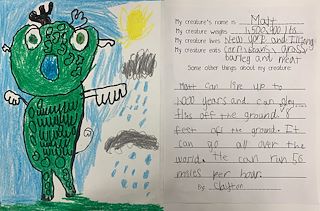 My creature's name is Matt
My creature weighs 1,500,900 lbs
My creature lives New York and
My creature eats corn, grass
barley and meat
Some other things about my creature:
Matt can live up to
1,000 years and can
flies off the ground. 8
feet off the ground. It
can go all over the
world. He can run 56
miles per hour.
By: Clayton